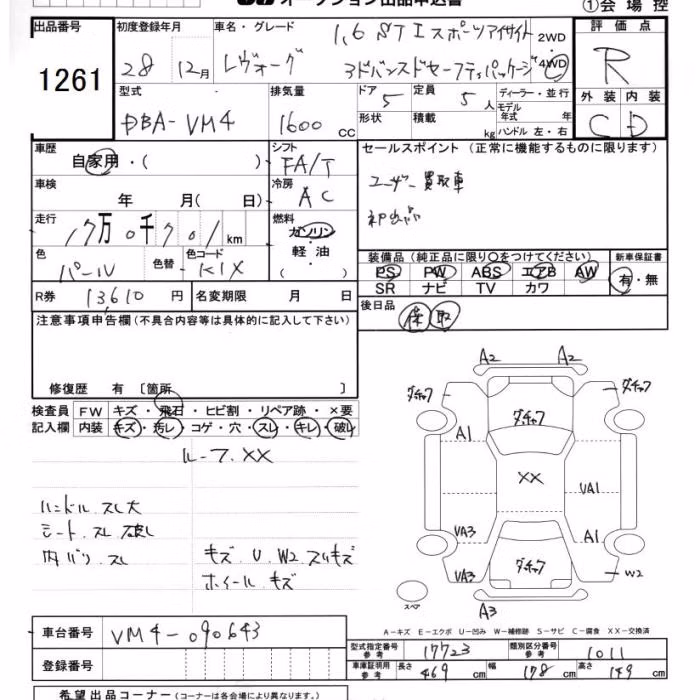 オークション出品申込書
①会場控
出品番号 初度登録年月 車名・グレード 1,6 STIスポーツアイサイト 2WD 評価点
1261 28 12月 レヴォーグ アドバンスドセーフティパッケージ 4WD R
型式 排気量 ドア 5 定員 5人 ディーラー・並行 外装 内装
DBA-VM4 1600cc 形状 積載 kg モデル年式 年 ハンドル 左・右 C D
車歴 自家用・( ) シフト FA/T セールスポイント (正常に機能するものに限ります)
車検 年 月( 日) 冷房 AC ユーザー買取車
走行 17万0千701km 燃料 ガソリン・軽油・( ) 初出品
色 パール 色替 色コード K1X 装備品(純正品に限り○をつけてください) 新車保証書
PS PW ABS エアB AW 有・無
R券 13,610円 名変期限 月 日 SR ナビ TV カワ
注意事項申告欄(不具合内容等は具体的に記入して下さい) 後日品 保 取
修復歴 有 〔箇所 〕
検査員 FW キズ・飛石・ヒビ割・リペア跡・×要
記入欄 内装 キズ・汚レ・コゲ・穴・スレ・キレ・破レ
ルーフ.XX
ハンドル スレ大
シート スレ 破レ
内バリ スレ キズ U W2 スリキズ
ホイール キズ
A2 A2
ダチャ7 ダチャ7
ダチャ7
A1
XX
UA1
UA3 A1
UA3 ダチャ7 W2
スペア A3
A-キズ E-エクボ U-凹み W-補修跡 S-サビ C-腐食 XX-交換済
車台番号 VM4-090643 型式指定番号 参考 17723 類別区分番号 参考 1011
登録番号 車庫証明用 参考 長さ 469cm 幅 178cm 高さ 149cm
希望出品コーナー (コーナーは各会場により異なります。)